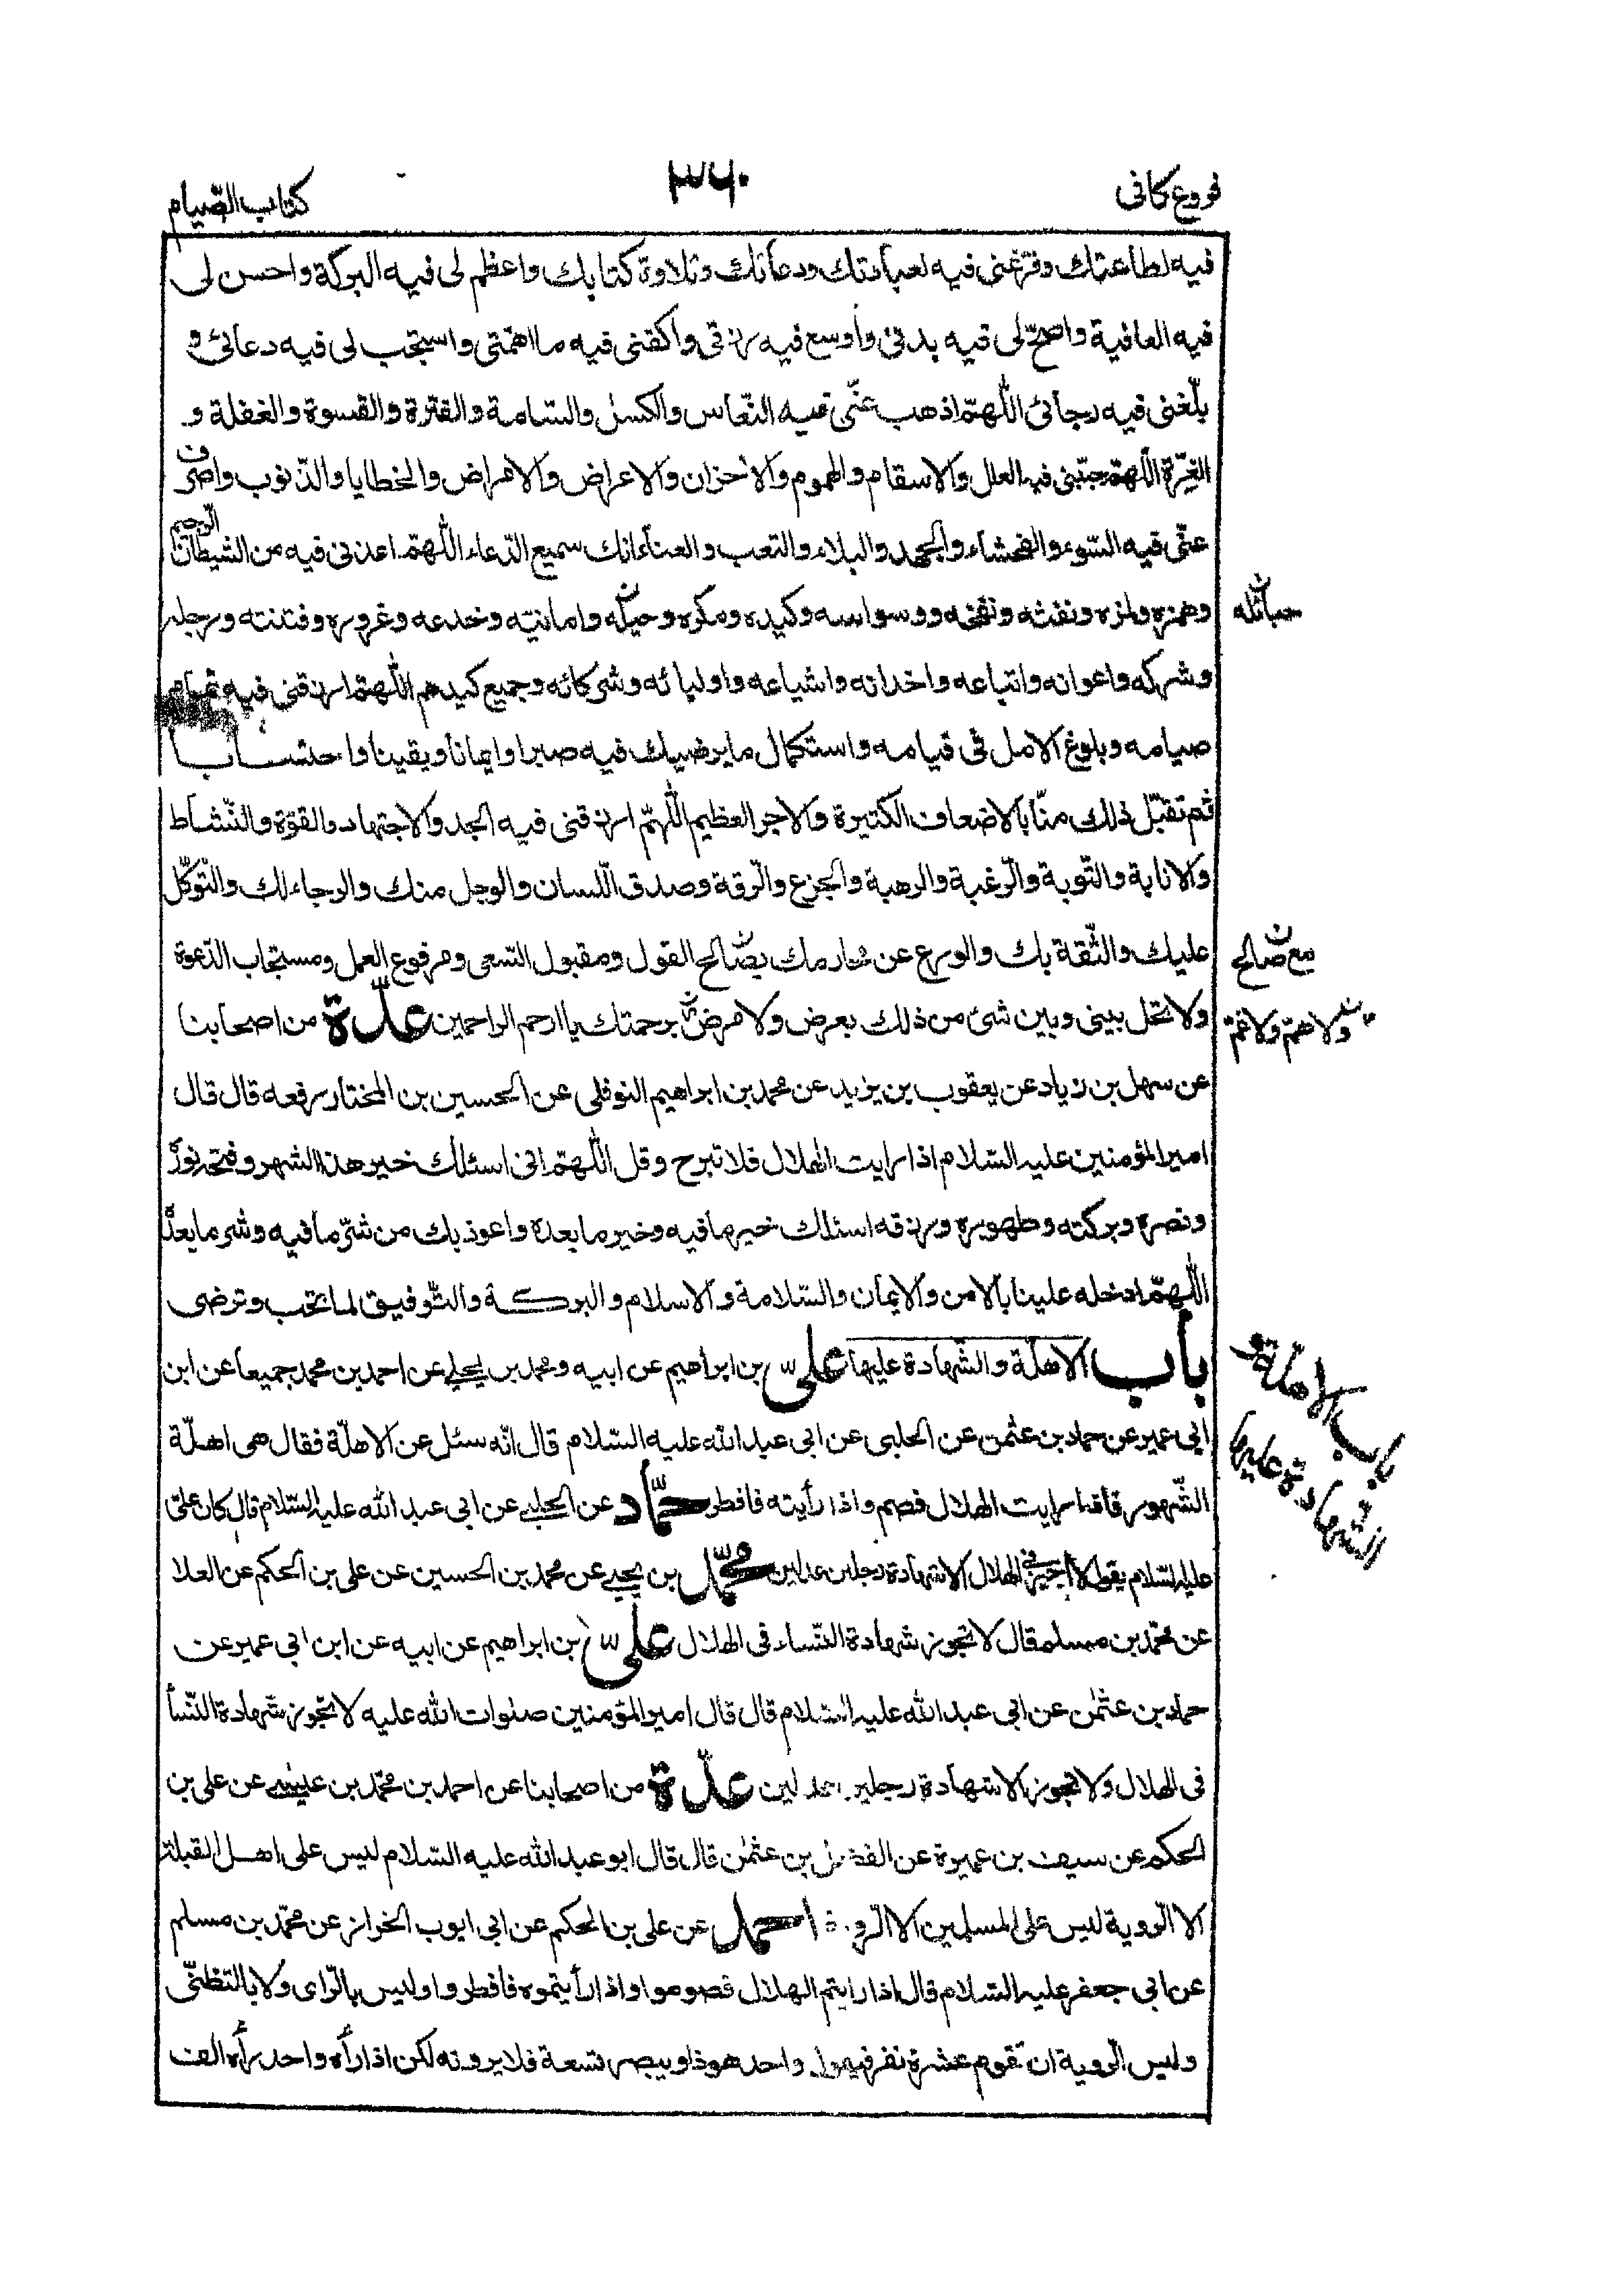 فروع كافى ٣٦٠ كتاب الصّيام
فيه لطاعتك وفرّغنى فيه لعبادتك ودعائك وتلاوة كتابك واعظم لى فيه البركة واحسن لى
فيه العافية واصحّ لى فيه بدنى واوسع فيه رزقى واكفنى فيه ما اهمّنى واستجب لى فيه دعائى و
بلّغنى فيه رجائى اللّهمّ اذهب عنّى فيه النّعاس والكسل والسّامة والفترة والقسوة والغفلة و
الغرّة اللّهمّ جنّبنى فيه العلل والاسقام والهموم والاحزان والاعراض والامراض والخطايا والذّنوب واصرف
عنّى فيه السّوء والفحشاء والجهد والبلاء والتعب والعناء انك سميع الدّعاء اللّهمّ اعذنى فيه من الشيطان الرّجيم
وهمزه ولمزه ونفثه ونفخه ووسواسه وكيده ومكره وحيله وامانيّه وخدعه وغروره وفتنته ورجله
حبائله
وشركه واعوانه واتباعه واخدانه واشياعه واوليائه وشركائه وجميع كيدهم اللّهمّ ارزقنى فيه تمام
صيامه وبلوغ الامل فى قيامه واستكمال ما يرضيك فيه صبرا وايمانا ويقينا واحتسابا
ثم تقبّل ذلك منّا بالاضعاف الكثيرة والاجر العظيم اللّهمّ ارزقنى فيه الجد والاجتهاد والقوّة والنّشاط
والانابة والتّوبة والرّغبة والرهبة والجزع والرّقة وصدق اللّسان والوجل منك والرجاء لك والتّوكّل
عليك والثّقة بك والورع عن محارمك بصالح القول ومقبول السّعى ومرفوع العمل ومستجاب الدّعوة
مع صالح
ولا تحل بينى وبين شئ من ذلك بعرض ولا مرض برحمتك يا ارحم الراحمين عدّة من اصحابنا
ولا همّ ولا غمّ
عن سهل بن زياد عن يعقوب بن يزيد عن محمد بن ابراهيم النوفلى عن الحسين بن المختار رفعه قال قال
امير المؤمنين عليه السّلام اذا رايت الهلال فلا تبرح وقل اللّهمّ انى اسئلك خير هذا الشهر وفتحه ونوره
ونصره وبركته وطهوره ورزقه اسئلك خير ما فيه وخير ما بعده واعوذ بك من شرّ ما فيه وشر ما بعده
اللّهمّ ادخله علينا بالامن والايمان والسّلامة والاسلام والبركة والتّوفيق لما تحب وترضى
باب الاهلّة والشّهادة عليها علىّ بن ابراهيم عن ابيه ومحمد بن يحيى عن احمد بن محمد جميعا عن ابن
باب الاهلّة و
الشّهادة عليها
ابى عمير عن حماد بن عثمن عن الحلبى عن ابى عبد الله عليه السّلام قال انّه سئل عن الاهلّة فقال هى اهلّة
الشّهور فاذا رايت الهلال فصم واذا رأيته فافطر حمّاد عن الحلبى عن ابى عبد الله عليه السّلام قال كان علىّ
عليه السّلام يقول لا اجيز فى الهلال الا شهادة رجلين عدلين محمّد بن يحيى عن محمد بن الحسين عن على بن الحكم عن العلا
عن محمّد بن مسلم قال لا تجوز شهادة النّساء فى الهلال علىّ بن ابراهيم عن ابيه عن ابن ابى عمير عن
حماد بن عثمٰن عن ابى عبد الله عليه السّلام قال قال امير المؤمنين صلوات الله عليه لا تجوز شهادة النّسأ
فى الهلال ولا تجوز الا شهادة رجلين عدلين عدّة من اصحابنا عن احمد بن محمّد بن عيسٰى عن على بن
الحكم عن سيف بن عميرة عن الفضيل بن عثمٰن قال قال ابو عبد الله عليه السّلام ليس على اهل القبلة
الا الرّوية ليس على المسلمين الا الرّوية احمد عن على بن الحكم عن ابى ايوب الخراز عن محمّد بن مسلم
عن ابى جعفر عليه السّلام قال اذا رايتم الهلال فصوموا واذا رأيتموه فافطروا وليس بالرّاى ولا بالتظنّى
وليس الرّوية ان تقوم عشرة نفر فيقول واحد هو ذا ويبصر تسعة فلا يرونه لكن اذا رأه واحد رأه الف